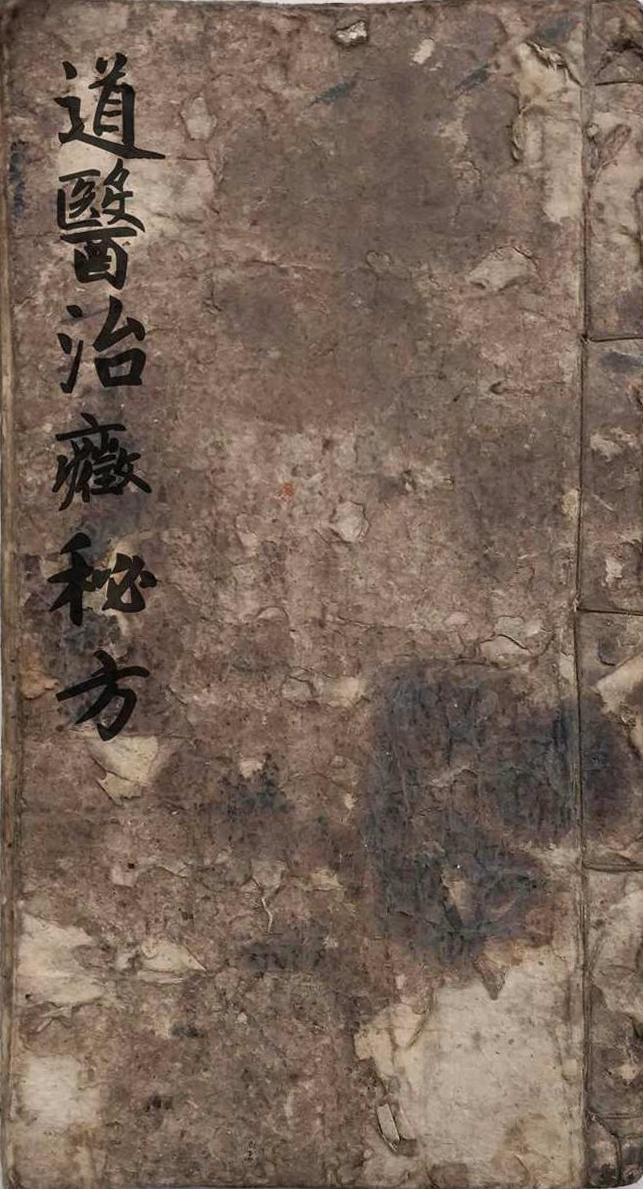 道醫治癥秘方